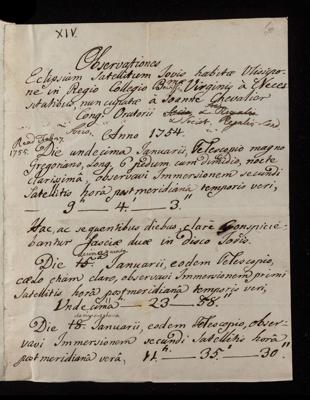 XIV.
Observationes
Eclipsium Satellitum Jovis habitæ Ulissipo-
ne in Regio Collegio Beatiss. Virginis à Neces
sitatibus, nuncupatæ à Joanne Chevalier
Cong. Oratorii
Anno 1754.
Read
1755.
Die undecima Januarii, Telescopio magno
Gregoriano, long. 6 pedum cum dimidio, nocte
clarissima, observavi Immersionem secundi
Satellitis horâ postmeridianâ temporis veri,
3" 4.' 3."
Hac, ac sequentibus diebus, clarè conspicie-
bantur fasciæ duæ in Disco Jovis.
Die Januarii, eodem Telescopio,
cælo etiam claro, observavi Immersionem primi
Satellitis horâ postmeridianâ temporis veri,
Undecima 23' 38"
Die Januarii, eodem Telescopio, obser-
vavi Immersionem secundi Satellitis horâ
postmeridianâ verâ, 35.' 30."